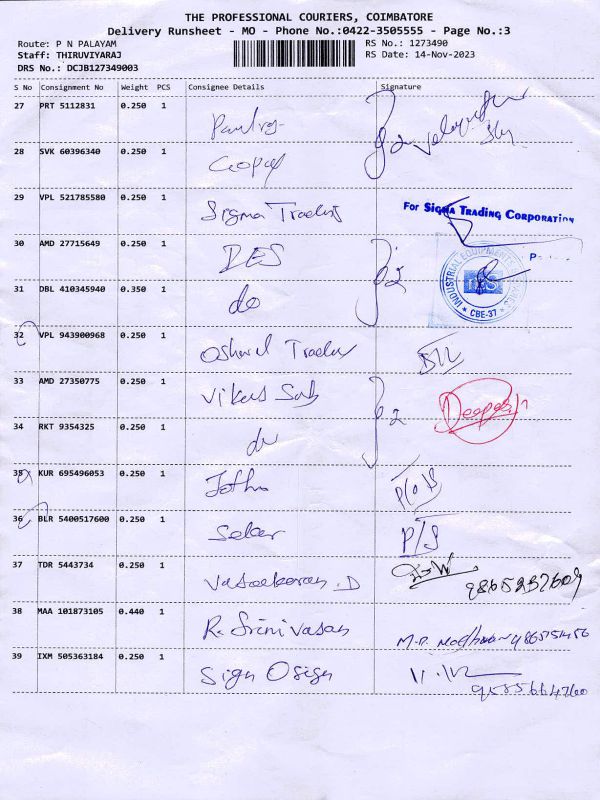 THE PROFESSIONAL COURIERS, COIMBATORE
Delivery Runsheet - MO - Phone No.:0422-3505555 - Page No.:3
Route: P N PALAYAM
RS No.: 1273490
Staff: THIRUVIYARAJ
RS Date: 14-Nov-2023
DRS No.: DCJB127349003
S No Consignment No Weight PCS Consignee Details Signature
27 PRT 5112831 0.250 1
28 SVK 60396340 0.250 1 Gopal
29 VPL 521785580 0.250 1 Sigma Traders
For Sigma Trading Corporation
30 AMD 27715649 0.250 1 IES
31 DBL 410345940 0.350 1 do
INDUSTRIAL EQUIPMENTS
* CBE-37 *
32 VPL 943900968 0.250 1 Trader
33 AMD 27350775 0.250 1 Vikas Sab
Deepesh
34 RKT 9354325 0.250 1 do
35 KUR 695496053 0.250 1
36 BLR 5400517600 0.250 1 Sekar P/S
37 TDR 5443734 0.250 1 Vaseekaran.D
38 MAA 101873105 0.440 1 R. Srinivasan
39 IXM 505363184 0.250 1 Sign O Sign
9585664760